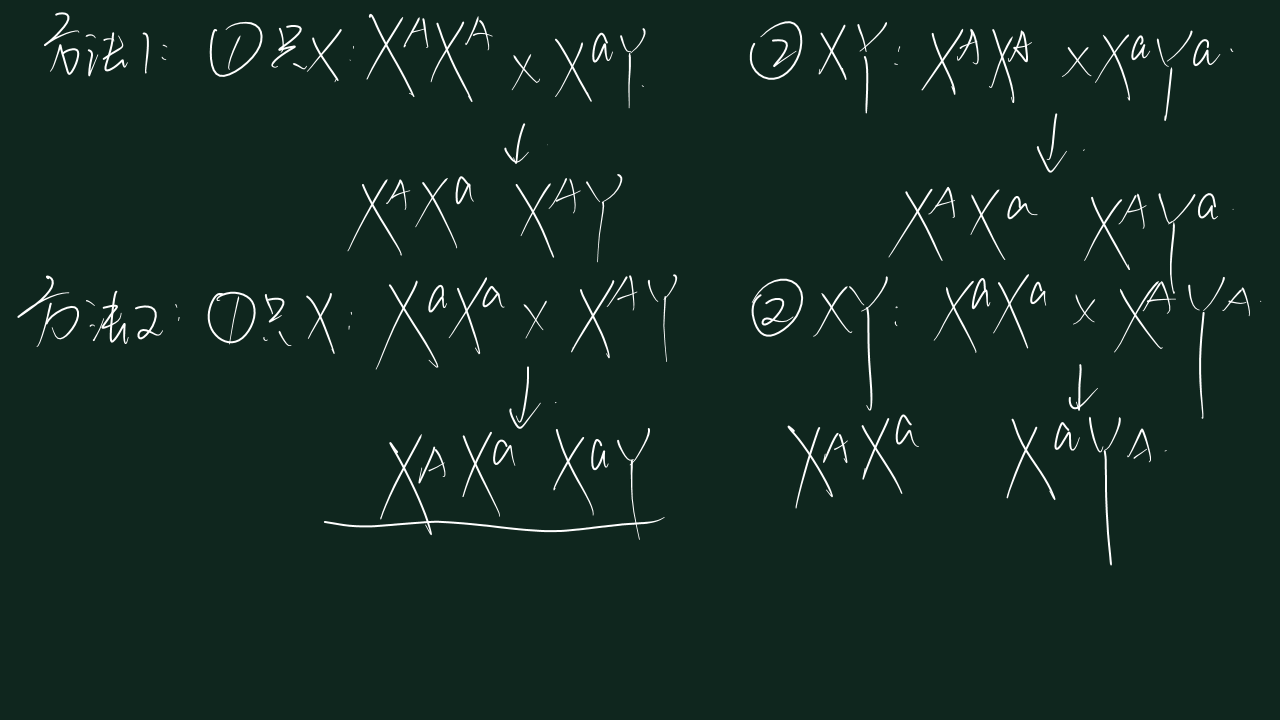 方法1: ①只X: X^A X^A × X^a Y ②XY: X^A X^A × X^a Y^a
↓ ↓
X^A X^a X^A Y X^A X^a X^A Y^a
方法2: ①只X: X^a X^a × X^A Y ②XY: X^a X^a × X^A Y^A
↓ ↓
X^A X^a X^a Y X^A X^a X^a Y^A